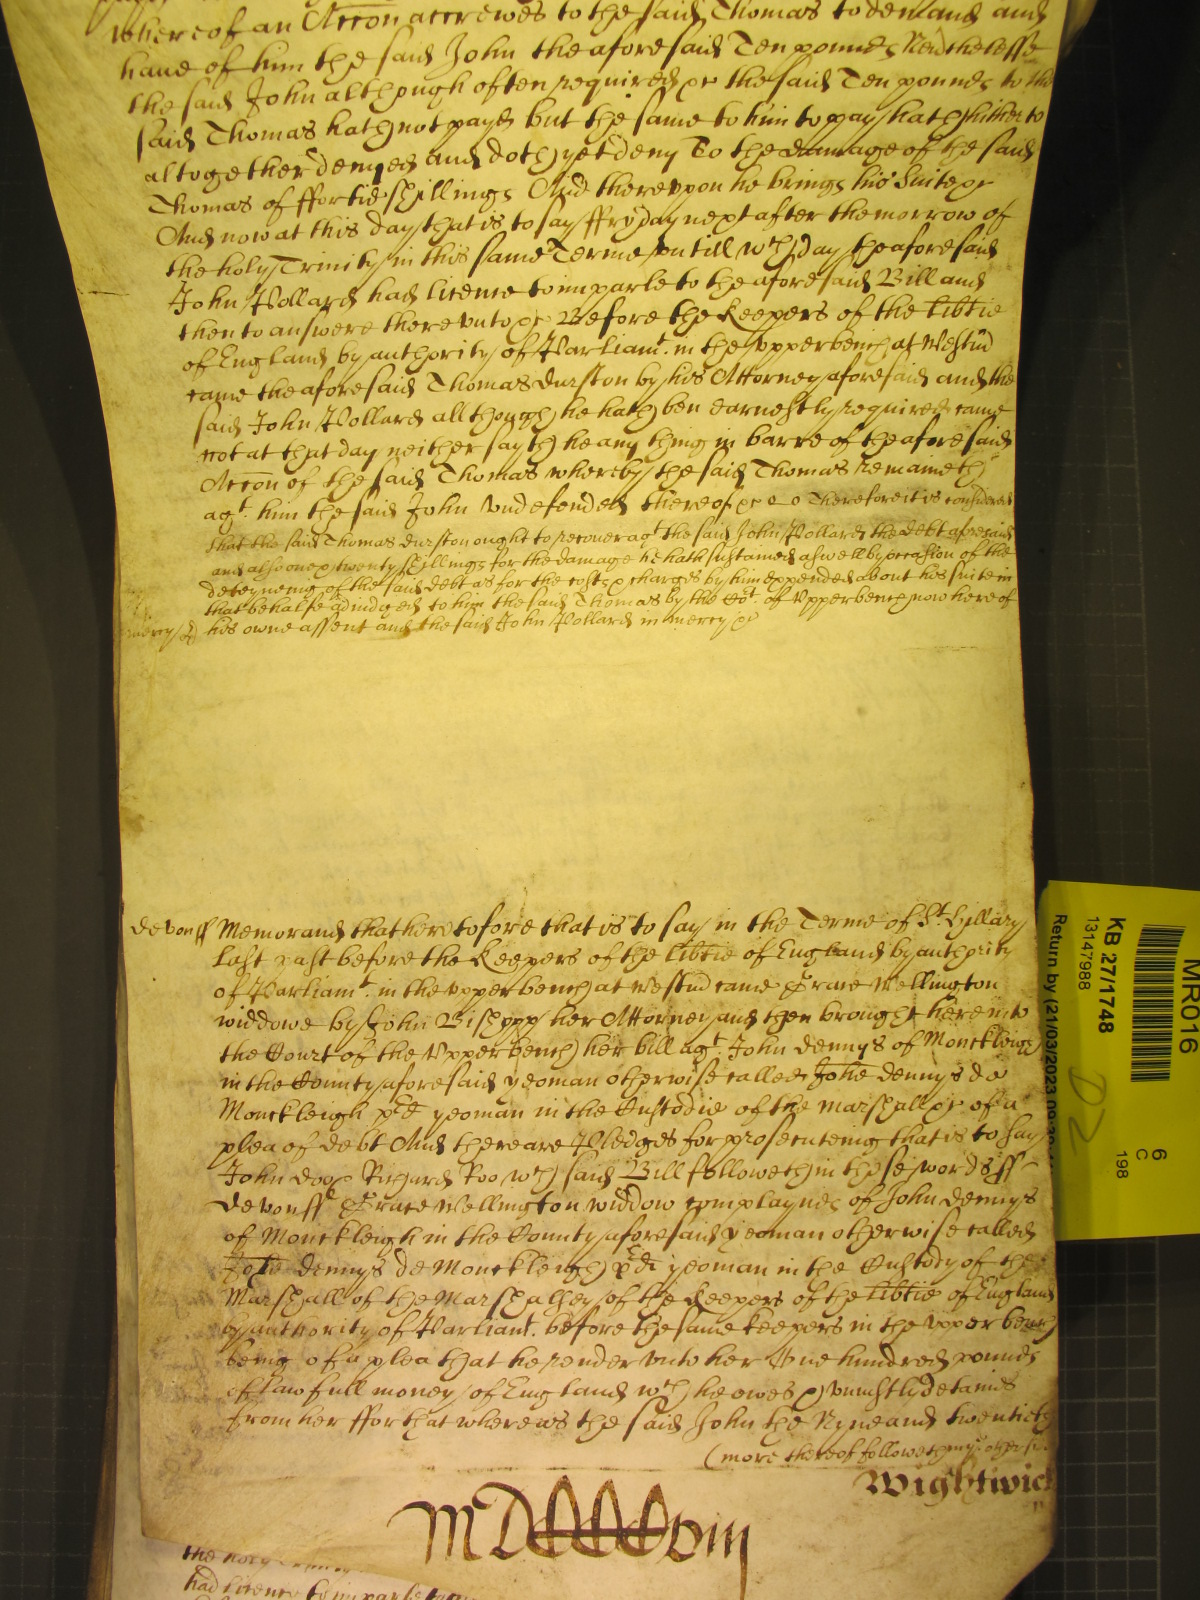 whereof an Accon accrewes to the said Thomas to demand and
have of him the said John the aforesaid Ten pounds Neverthelesse
the said John although often required &c the said Ten pounds to the
said Thomas hath not payed but the same to him to pay hath hitherto
altogether denyed and doth yet deny To the damage of the said
Thomas of ffortie shillings And thereupon he brings his Suite &c
And now at this day that is to say ffryday next after the morrow of
the holy Trinity in this same Terme untill wch day the aforesaid
John Pollard had licence to imparle to the aforesaid Bill and
then to answere thereunto &c Before the Keepers of the libtie
of England by authority of Parliamt. in the upper bench at Westm
came the aforesaid Thomas Durston by his Attorney aforesaid and the
said John Pollard although he hath ben earnestly required came
not at that day neither sayth he any thing in barre of the aforesaid
Accon of the said Thomas whereby the said Thomas remaineth
agt. him the said John undefended thereof &c Therefore it is considered
that the said Thomas Durston ought to recover agt the said John Pollard the debt aforesaid
and also twenty shillings for the damage he hath sustained aswell by occasion of the
deteyneing of the said debt as for the costs & charges by him expended about his suite in
that behalfe adiudged to him the said Thomas by the Cot. of Upper bench now here of
mercy his owne assent and the said John Pollard in mercy &c
devon ss Memorand that heretofore that is to say in the Terme of St. Hillary
last past before the Keepers of the libtie of England by authority
of Parliamt. in the upper bench at Westm came Grace Wellington
widdowe by John Bishopp her Attorney and then brought here into
the Court of the Upper bench her bill agt. John Dennys of Monckleigh
in the County aforesaid yeoman otherwise called Johe Dennys de
Monckleigh pd yeoman in the Custodie of the Marshall &c of a
plea of debt And there are Pledges for prosecuteing that is to say
John doo & Richard Roo wch said Bill followeth in these words ss
devon ss Grace Wellington widdow complaynes of John Dennys
of Monckleigh in the County aforesaid yeoman otherwise called
Johe Dennys de Monckleigh pd yeoman in the Custody of the
Marshall of the Marshalsey of the Keepers of the libtie of England
by authority of Parliamt. before the same keepers in the upper bench
being of a plea that he render unto her One hundred pounds
of lawfull money of England wch he owes & uniustly detaines
from her ffor that whereas the said John the Nyne and twentieth
(more thereof followeth
Wightwick
the holy
had licence to imparle to
MR016
KB 27/1748
13147988
Return by (21/03/2023
D2
6
C
198